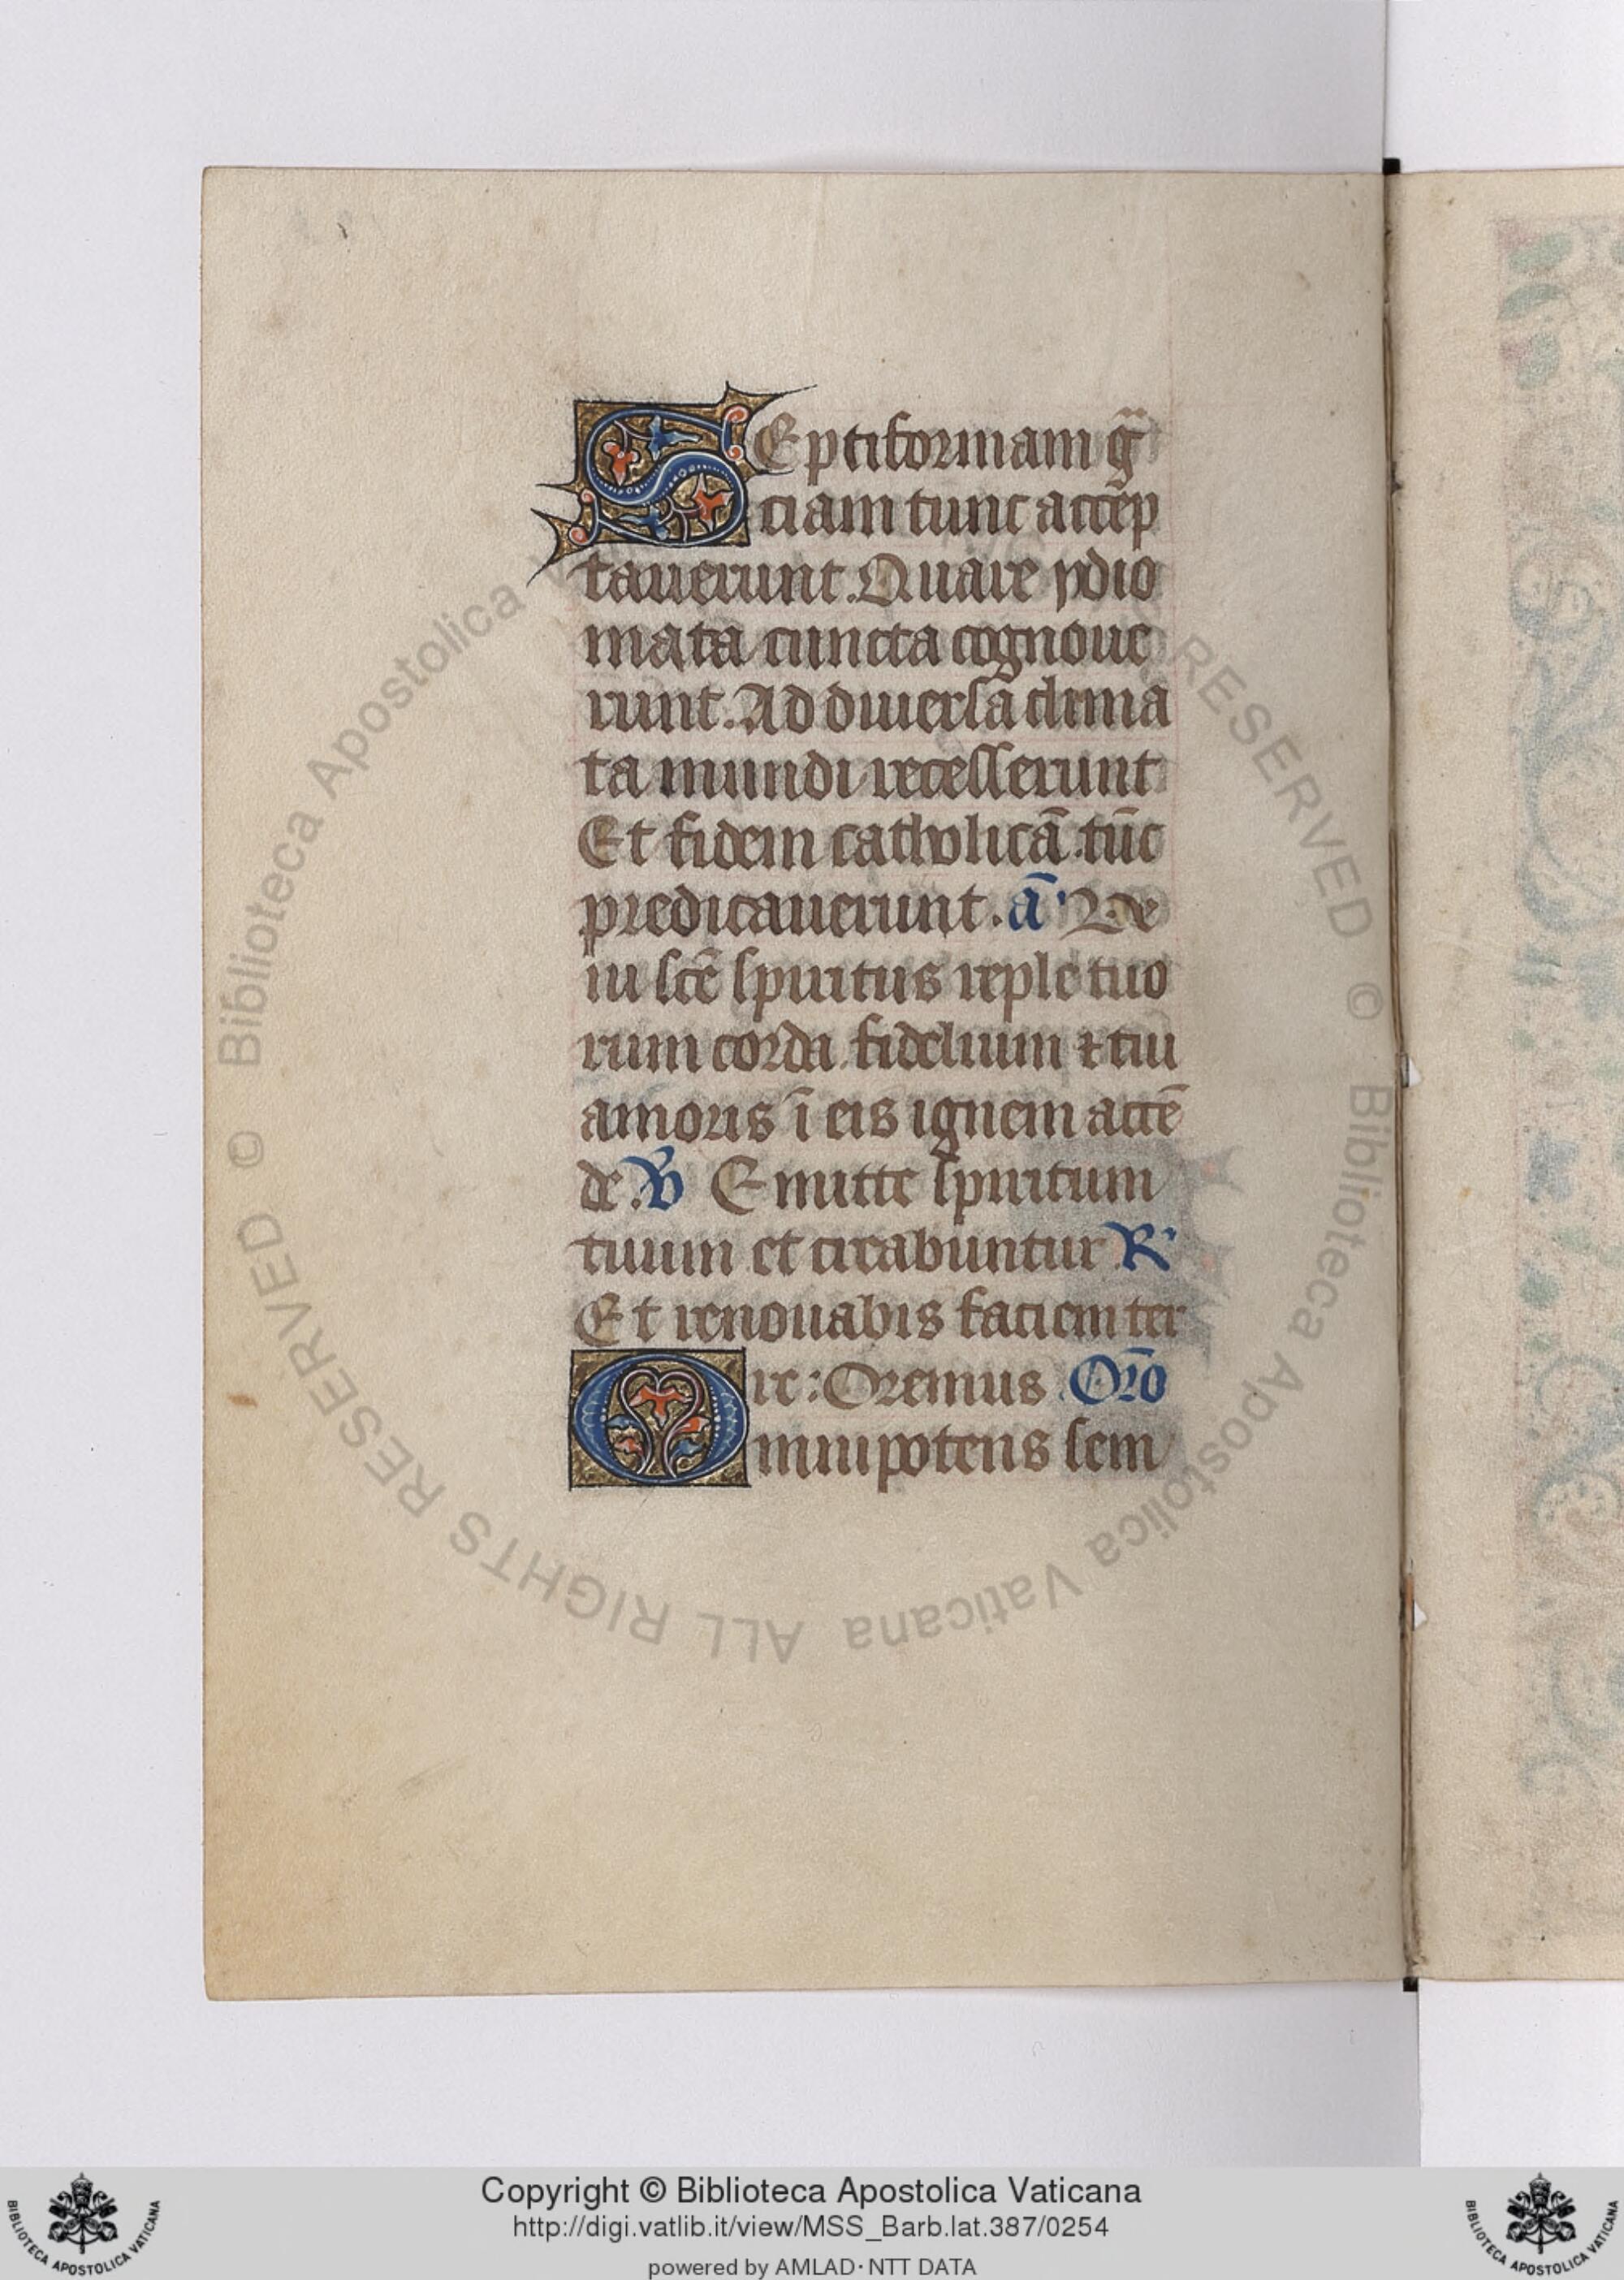 SEptiformam gᷓ
ciam tunc accep̄
tauerunt. Quare ydio
mata cuncta cognoue
runt. Ad diuersa clima
ta mundi recesserunt
Et fidem catholicā. tūc
predicauerunt. ā Ve
ni scē spiritus reple tuo
rum corda fidelium ⁊ tui
amoris ī eis ignem accē
de. V̄ Emitte spiritum
tuum et creabuntur R'
Et renouabis faciem ter
re: Oremus Oŕo
Omnipotens sem
© Biblioteca Apostolica Vaticana ALL RIGHTS RESERVED © Biblioteca Apostolica Vaticana ALL RIGHTS RESERVED
Copyright © Biblioteca Apostolica Vaticana
http://digi.vatlib.it/view/MSS_Barb.lat.387/0254
powered by AMLAD·NTT DATA
BIBLIOTECA APOSTOLICA VATICANA
BIBLIOTECA APOSTOLICA VATICANA